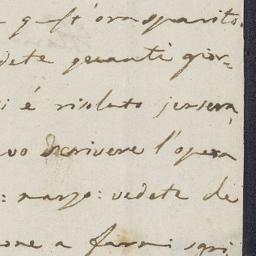 quest'ora sparito.
dete quanti gior=
si è risoluto jersera
vo scrivere l'opera
: marzo: vedete di
one a farmi sgri